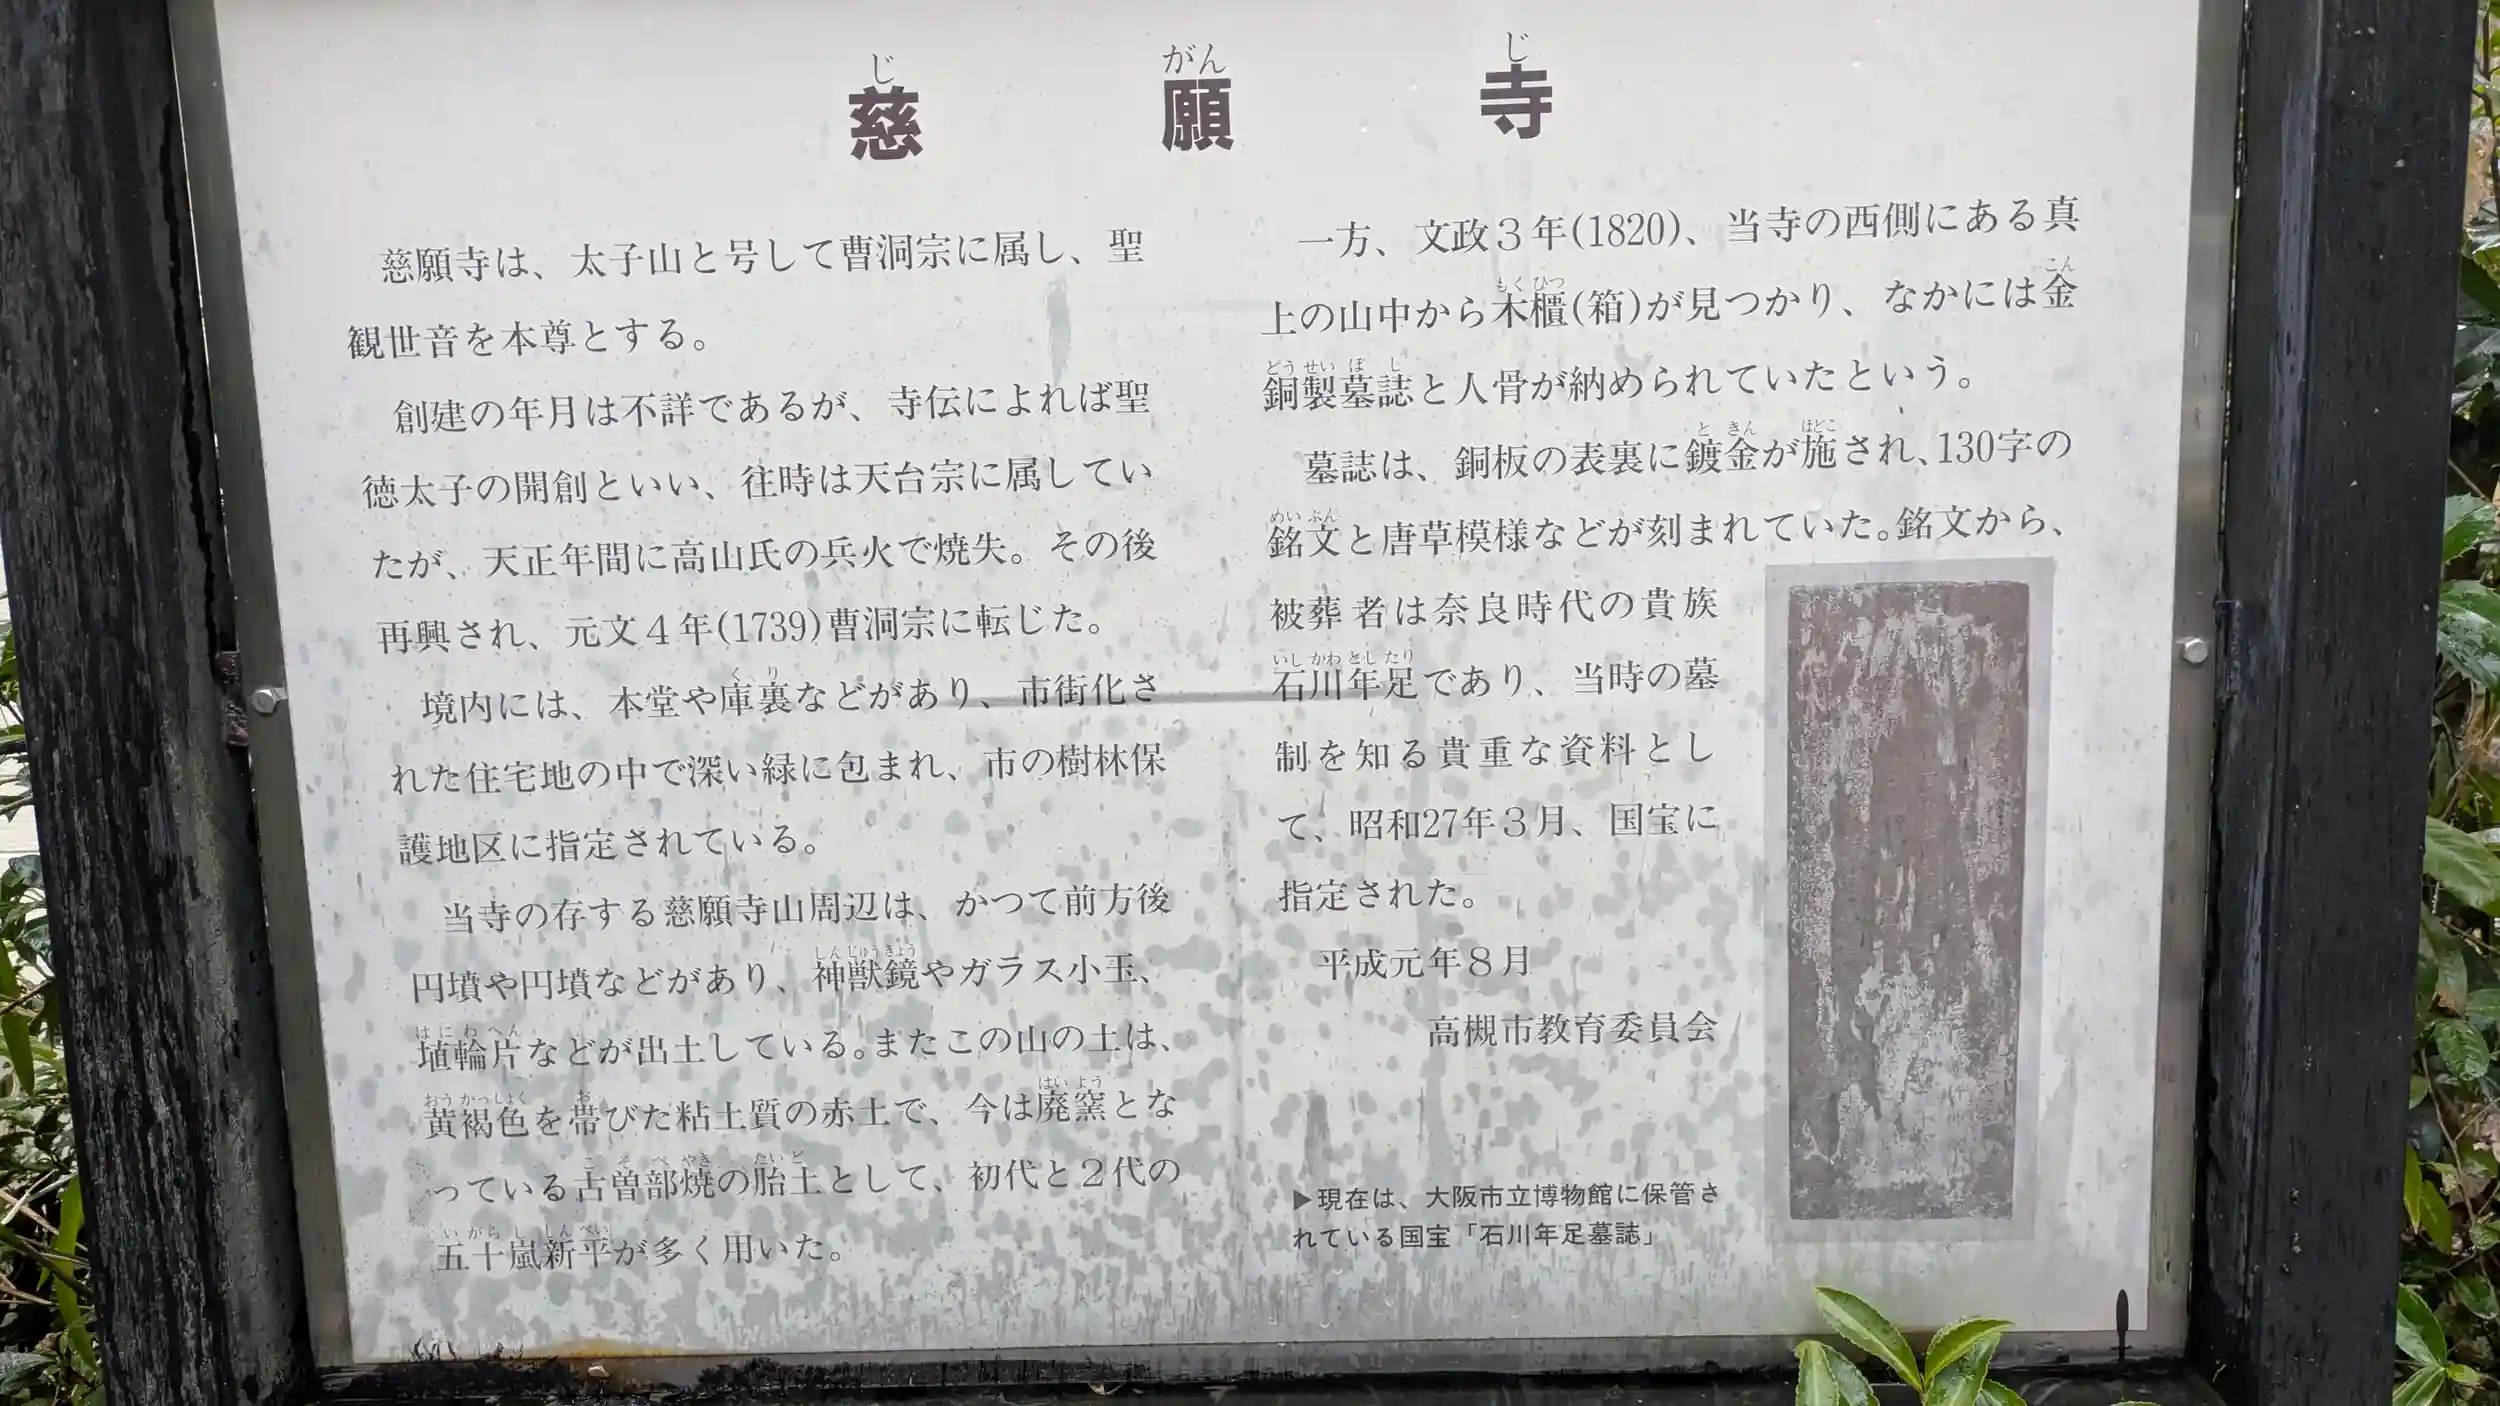 慈願寺
慈願寺は、太子山と号して曹洞宗に属し、聖
観世音を本尊とする。
創建の年月は不詳であるが、寺伝によれば聖
徳太子の開創といい、往時は天台宗に属してい
たが、天正年間に高山氏の兵火で焼失。その後
再興され、元文4年(1739)曹洞宗に転じた。
境内には、本堂や庫裏などがあり、市街化さ
れた住宅地の中で深い緑に包まれ、市の樹林保
護地区に指定されている。
当寺の存する慈願寺山周辺は、かつて前方後
円墳や円墳などがあり、神獣鏡やガラス小玉、
埴輪片などが出土している。またこの山の土は、
黄褐色を帯びた粘土質の赤土で、今は廃窯とな
っている古曽部焼の胎土として、初代と2代の
五十嵐新平が多く用いた。
一方、文政3年(1820)、当寺の西側にある真
上の山中から木櫃(箱)が見つかり、なかには金
銅製墓誌と人骨が納められていたという。
墓誌は、銅板の表裏に鍍金が施され、130字の
銘文と唐草模様などが刻まれていた。銘文から、
被葬者は奈良時代の貴族
石川年足であり、当時の墓
制を知る貴重な資料とし
て、昭和27年3月、国宝に
指定された。
平成元年8月
高槻市教育委員会
▶現在は、大阪市立博物館に保管さ
れている国宝「石川年足墓誌」